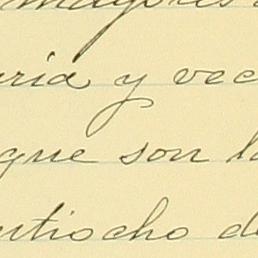 mayores
ria y vec
que son l
ntiocho de